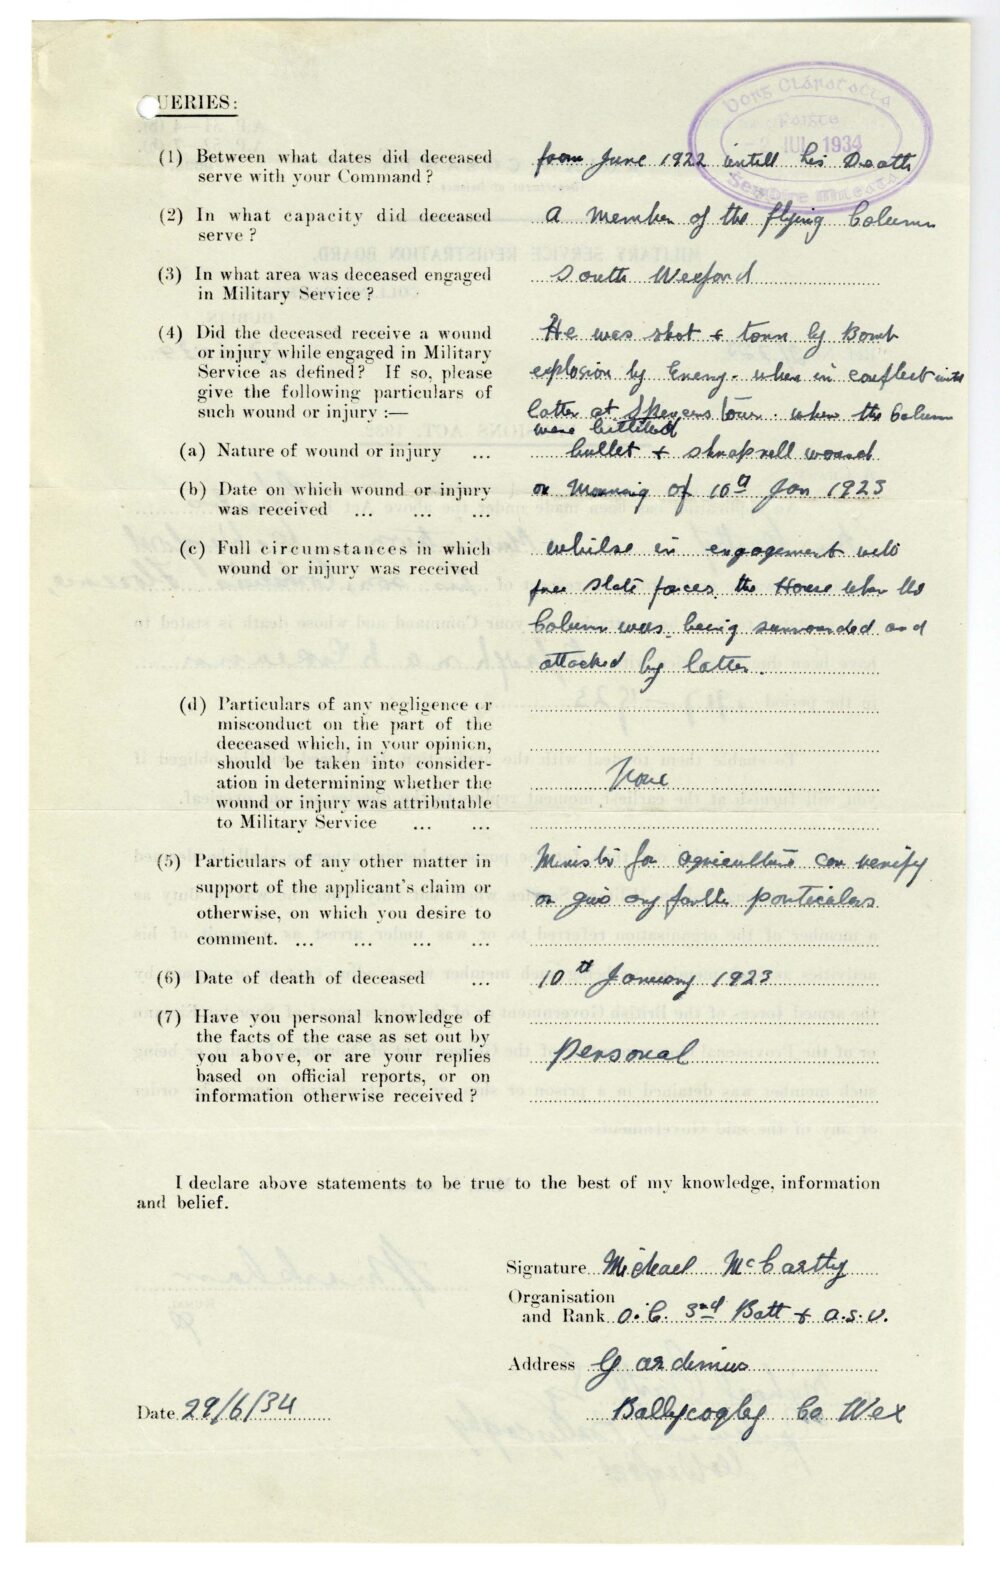 UERIES:
Bord Clárataca
Fórsta
JUL 1934
(1) Between what dates did deceased
serve with your Command?
from June 1922 untill his Death
(2) In what capacity did deceased
serve?
A member of the flying Column
(3) In what area was deceased engaged
in Military Service?
South Wexford
(4) Did the deceased receive a wound
or injury while engaged in Military
Service as defined? If so, please
give the following particulars of
such wound or injury:—
He was shot & torn by Bomb
explosion by Enemy. when in conflect with
latter at Town. when the Column
were
(a) Nature of wound or injury ...
bullet & shrapnell wound
(b) Date on which wound or injury
was received ... ... ...
on Morning of 10th Jan 1923
(c) Full circumstances in which
wound or injury was received
whilse in engagement with
free state forces. the House wher the
Column was. being surrounded and
attacked by latter.
(d) Particulars of any negligence or
misconduct on the part of the
deceased which, in your opinion,
should be taken into consider-
ation in determining whether the
wound or injury was attributable
to Military Service ... ...
None
(5) Particulars of any other matter in
support of the applicant's claim or
otherwise, on which you desire to
comment. ... ... ... ...
Minister for agriculture can verify
or give any further particulars
(6) Date of death of deceased ...
10th January 1923
(7) Have you personal knowledge of
the facts of the case as set out by
you above, or are your replies
based on official reports, or on
information otherwise received?
Personal
I declare above statements to be true to the best of my knowledge, information
and belief.
Signature Michael McCarthy
Organisation
and Rank O.C. 3rd Batt & A.S.U.
Address
Date 29/6/34
Ballycogley Co Wex